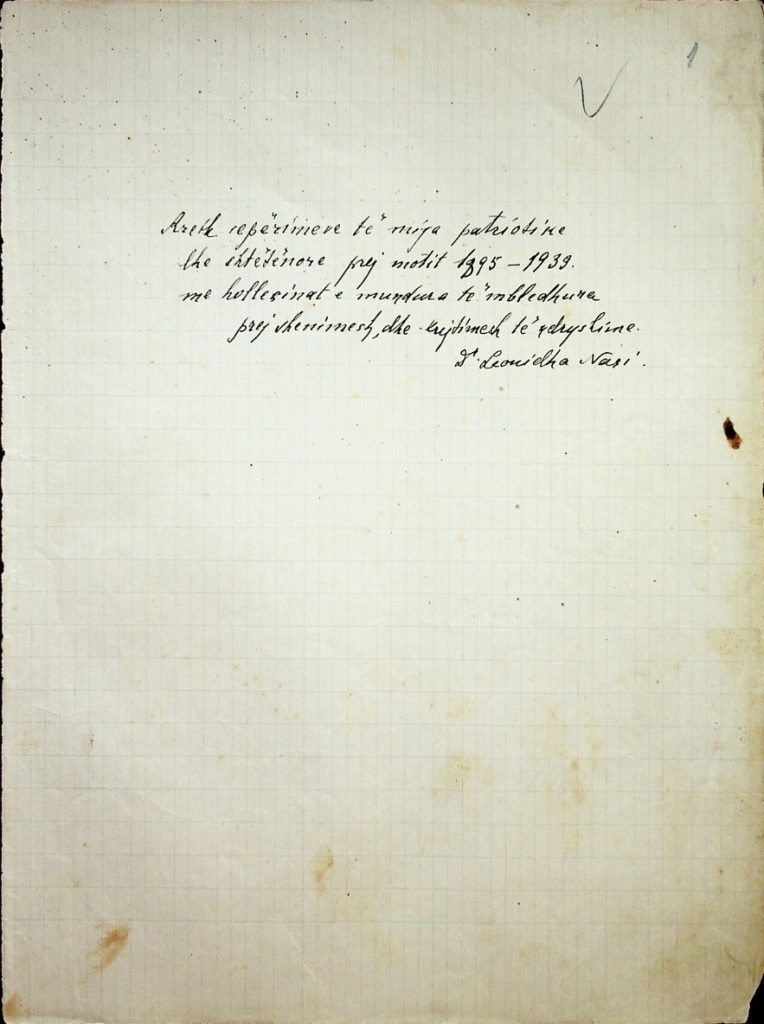 1
Rreth vepërimeve të mija patriotike
dhe shtetënore prej motit 1895 – 1939.
me hollësinat e mundura të mbledhura
prej shenimesh, dhe kujtimesh të ndryshme.
Dr. Leonidha Naçi.